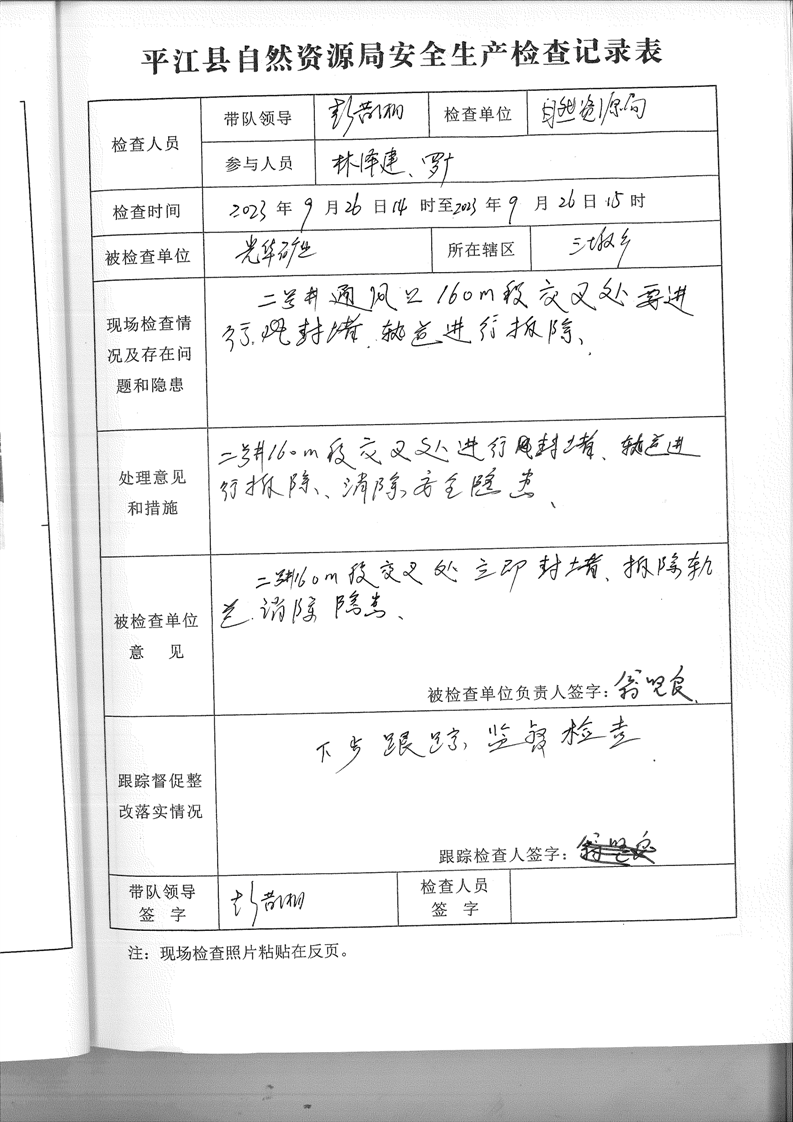 平江县自然资源局安全生产检查记录表
检查人员 带队领导 检查单位 自然资源局
参与人员 林泽建、罗
检查时间 2023 年 9 月 26 日 14 时至 2023 年 9 月 26 日 15 时
被检查单位 光华矿业 所在辖区 三墩乡
现场检查情
况及存在问
题和隐患
二号井通风口160m段交叉处要进
行 封堵、轨道进行拆除、
处理意见
和措施
二号井160m段交叉处进行 封堵、轨道进
行拆除、消除安全隐患、
被检查单位
意 见
二号井160m段交叉处立即封堵、拆除轨
道、消除隐患、
被检查单位负责人签字:
跟踪督促整
改落实情况
下步跟踪监督检查
跟踪检查人签字:
带队领导
签 字
检查人员
签 字
注:现场检查照片粘贴在反页。